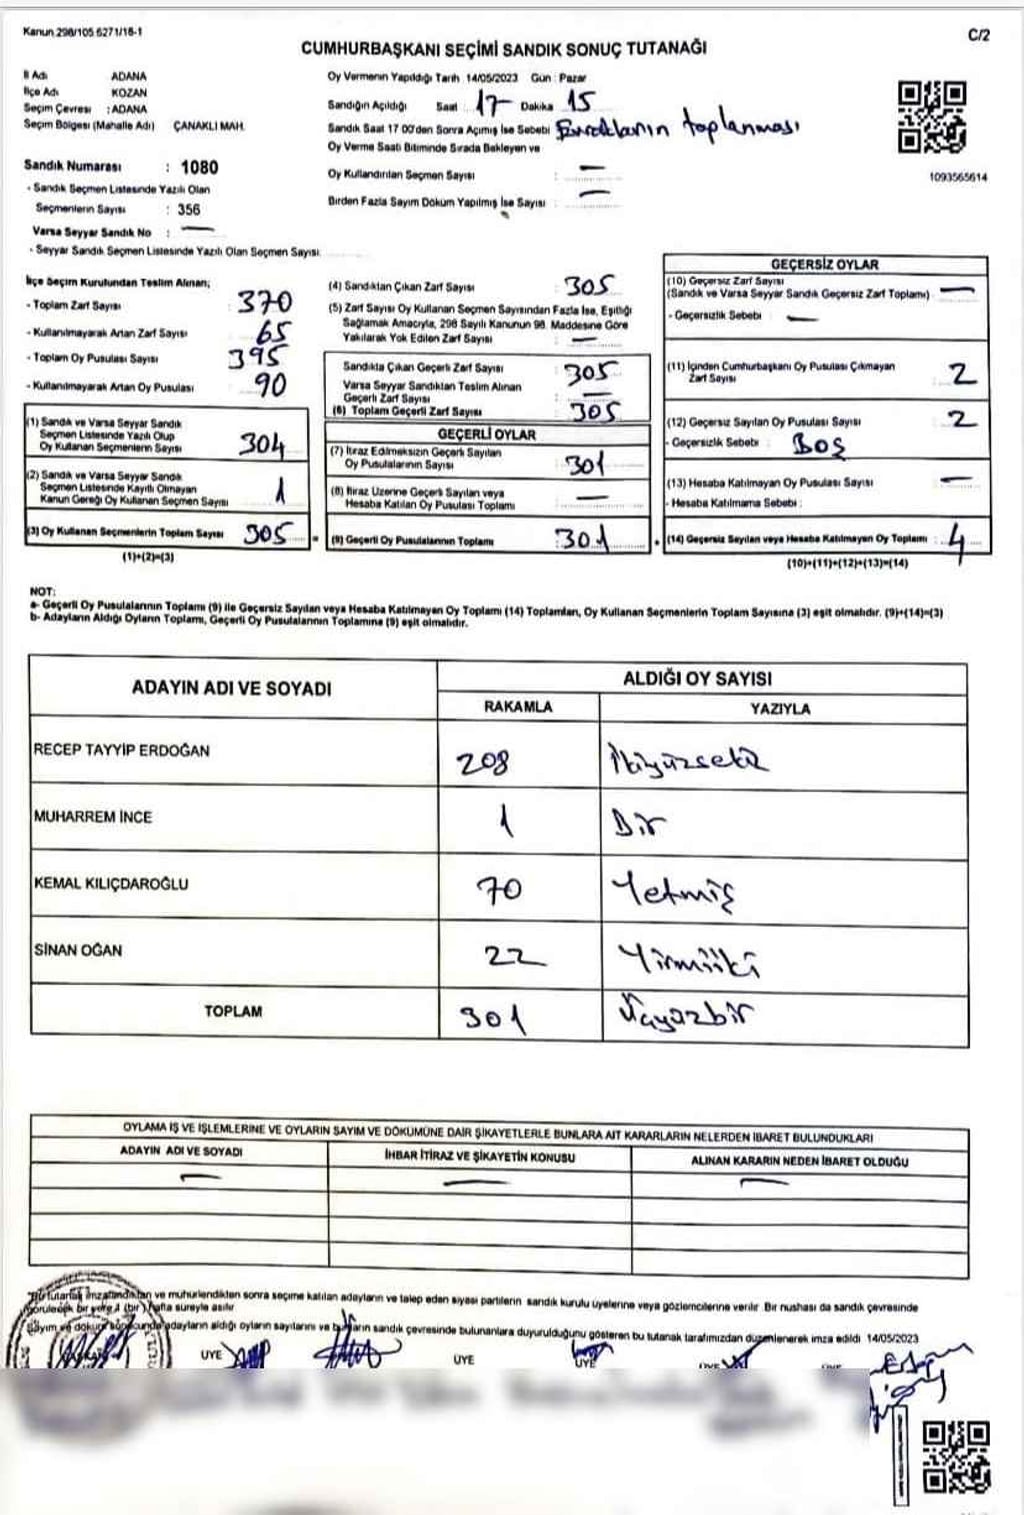 Kanun 298/105 6271/18-1
C/2
CUMHURBAŞKANI SEÇİMİ SANDIK SONUÇ TUTANAĞI
İl Adı ADANA
İlçe Adı KOZAN
Seçim Çevresi : ADANA
Seçim Bölgesi (Mahalle Adı) ÇANAKLI MAH.
Sandık Numarası : 1080
- Sandık Seçmen Listesinde Yazılı Olan
Seçmenlerin Sayısı : 356
Varsa Seyyar Sandık No : —
- Seyyar Sandık Seçmen Listesinde Yazılı Olan Seçmen Sayısı
Oy Vermenin Yapıldığı Tarih 14/05/2023 Gün : Pazar
Sandığın Açıldığı Saat : 17 Dakika 15
Sandık Saat 17 00'den Sonra Açımış İse Sebebi Evrakların toplanması
Oy Verme Saati Bitiminde Sırada Bekleyen ve
Oy Kullandırılan Seçmen Sayısı : —
Birden Fazla Sayım Döküm Yapılmış İse Sayısı : —
1093565614
İlçe Seçim Kurulundan Teslim Alınan;
- Toplam Zarf Sayısı 370
- Kullanılmayarak Artan Zarf Sayısı 65
- Toplam Oy Pusulası Sayısı 395
- Kullanılmayarak Artan Oy Pusulası 90
(1) Sandık ve Varsa Seyyar Sandık
Seçmen Listesinde Yazılı Olup
Oy Kullanan Seçmenlerin Sayısı 304
(2) Sandık ve Varsa Seyyar Sandık
Seçmen Listesinde Kayıtlı Olmayan
Kanun Gereği Oy Kullanan Seçmen Sayısı 1
(3) Oy Kullanan Seçmenlerin Toplam Sayısı 305
(1)+(2)=(3)
(4) Sandıktan Çıkan Zarf Sayısı : 305
(5) Zarf Sayısı Oy Kullanan Seçmen Sayısından Fazla İse, Eşitliği
Sağlamak Amacıyla, 298 Sayılı Kanunun 98. Maddesine Göre
Yakılarak Yok Edilen Zarf Sayısı : —
Sandıkta Çıkan Geçerli Zarf Sayısı : 305
Varsa Seyyar Sandıktan Teslim Alınan
Geçerli Zarf Sayısı : —
(6) Toplam Geçerli Zarf Sayısı : 305
GEÇERLİ OYLAR
(7) İtiraz Edilmeksizin Geçerli Sayılan
Oy Pusulalarının Sayısı : 301
(8) İtiraz Üzerine Geçerli Sayılan veya
Hesaba Katılan Oy Pusulası Toplamı : —
(9) Geçerli Oy Pusulalarının Toplamı : 301
GEÇERSİZ OYLAR
(10) Geçersiz Zarf Sayısı
(Sandık ve Varsa Seyyar Sandık Geçersiz Zarf Toplamı) : —
- Geçersizlik Sebebi : —
(11) İçinden Cumhurbaşkanı Oy Pusulası Çıkmayan
Zarf Sayısı : 2
(12) Geçersiz Sayılan Oy Pusulası Sayısı : 2
- Geçersizlik Sebebi : Boş
(13) Hesaba Katılmayan Oy Pusulası Sayısı : —
- Hesaba Katılmama Sebebi :
(14) Geçersiz Sayılan veya Hesaba Katılmayan Oy Toplamı : 4
(10)+(11)+(12)+(13)=(14)
NOT:
a- Geçerli Oy Pusulalarının Toplamı (9) ile Geçersiz Sayılan veya Hesaba Katılmayan Oy Toplamı (14) Toplamları, Oy Kullanan Seçmenlerin Toplam Sayısına (3) eşit olmalıdır. (9)+(14)=(3)
b- Adayların Aldığı Oyların Toplamı, Geçerli Oy Pusulalarının Toplamına (9) eşit olmalıdır.
ADAYIN ADI VE SOYADI
ALDIĞI OY SAYISI
RAKAMLA YAZIYLA
RECEP TAYYİP ERDOĞAN 208 İkiyüzsekiz
MUHARREM İNCE 1 Bir
KEMAL KILIÇDAROĞLU 70 Yetmiş
SİNAN OĞAN 22 Yirmiiki
TOPLAM 301 Üçyüzbir
OYLAMA İŞ VE İŞLEMLERİNE VE OYLARIN SAYIM VE DÖKÜMÜNE DAİR ŞİKAYETLERLE BUNLARA AİT KARARLARIN NELERDEN İBARET BULUNDUKLARI
ADAYIN ADI VE SOYADI İHBAR İTİRAZ VE ŞİKAYETİN KONUSU ALINAN KARARIN NEDEN İBARET OLDUĞU
— — —
Bu tutanak imzalandıktan ve mühürlendikten sonra seçime katılan adayların ve talep eden siyasi partilerin sandık kurulu üyelerine veya gözlemcilerine verilir Bir nushası da sandık çevresinde
görülecek bir yere 1 (bir) hafta süreyle asılır
Sayım ve döküm sonucunda adayların aldığı oyların sayılarını ve bunların sandık çevresinde bulunanlara duyurulduğunu gösteren bu tutanak tarafımızdan düzenlenerek imza edildi 14/05/2023
ÜYE ÜYE ÜYE